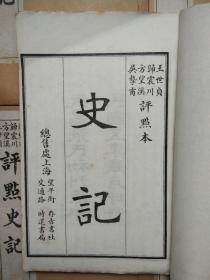 王世貞
歸震川
方望溪
吳摯甫
評點本
史記
總售處上海
望平街
交通路
存古書社
時還書局
評點史記
方望溪
歸震川